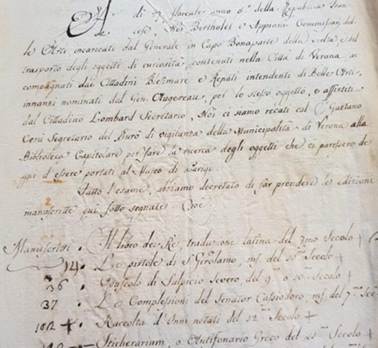 A di 27 Floreale anno 6 della Republica Fran
le Arte incaricati dal Generale in Capo Bonaparte della scelta e del
trasporto degli oggetti di curiosità, contenuti nella Città di Verona, ac
compagnati dai Cittadini Bezmare e Repali intendenti di Belle Arti,
innanzi nominati dal Gen. Augereau, per lo stesso oggetto, e assistiti
dal Cittadino Lombard Secretario, Noi ci siamo recati col Gaetano
Secretario del Burò di vigilanza della Municipalità di Verona alla
Biblioteca Capitolare per fare la ricerca degli oggetti che ci paressero de
gni d'essere portati al Museo di Parigi
Fatto l'esame, abbiamo decretato di far prendere le edizioni
manoscritti qui sotto segnate Cioè
Manuscritti Il libro de Re, traduzione latina del Secolo +
14 Le pistole di S. Girolamo, mſ. del Secolo +
36 Opuscolo di Sulpicio Severo del 9.no o 10.mo secolo +
37 Le Complessioni del Senator Cassiodoro mſ. del 7.mo Sec
102 + Raccolta d'Inni notati del 12.mo Secolo +
Sticherarium, o Antifonario Greco del Secolo +